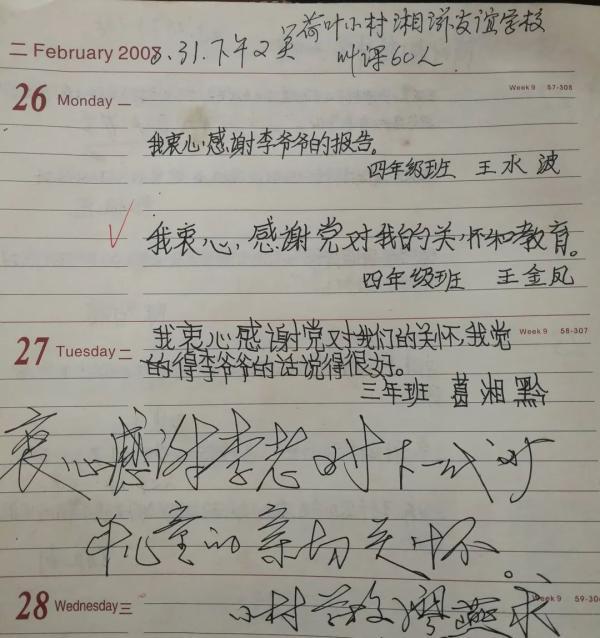 荷叶小村湘洋友谊学校
二 February 2008.31.下午2
课60人
Week 9 57-308
26 Monday 一
我衷心感谢李爷爷的报告。
四年级班 王水波
我衷心,感谢党对我的关怀和教育。
四年级班 王金凤
27 Tuesday 二
Week 9 58-307
我衷心感谢党对我们的关怀,我觉
的得李爷爷的话说得很好。
三年班 葛湘黔
衷心感谢李老时下一代
童的亲切关怀。
28 Wednesday 三
Week 9 59-306
小村学校廖燕